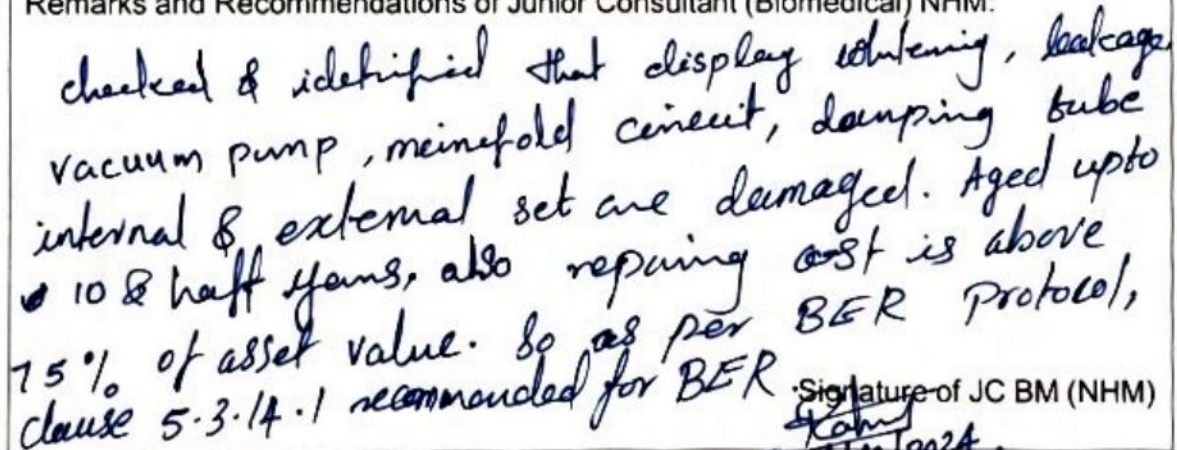 Remarks and Recommendations of Junior Consultant (Biomedical) NHM:
checked & idetified that display whitening, leakage
vacuum pump, meinefold circuit, damping tube
internal & external set are damaged. Aged upto
10 & haff years, also repairing cost is above
75% of asset value. So as per BER Protocol,
clause 5.3.14.1 recommanded for BER
Signature of JC BM (NHM)
2024.